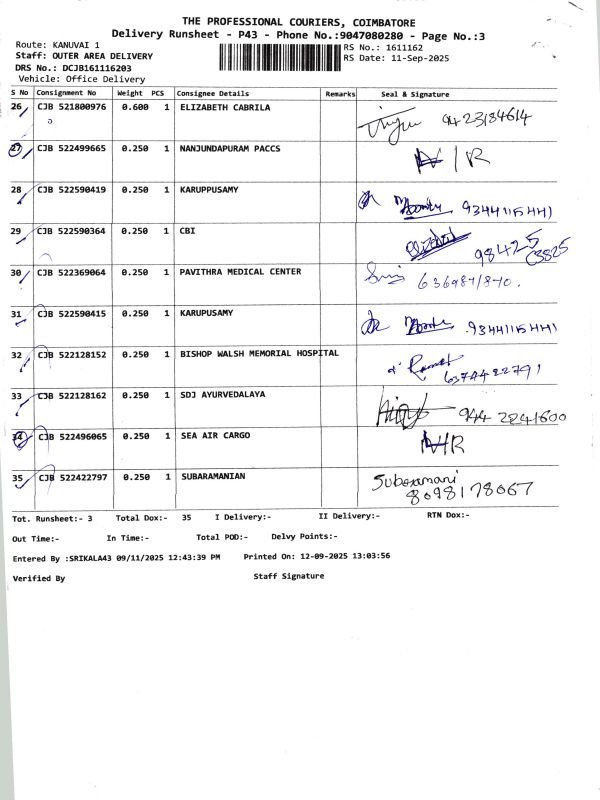 THE PROFESSIONAL COURIERS, COIMBATORE
Delivery Runsheet - P43 - Phone No.:9047080280 - Page No.:3
Route: KANUVAI 1 RS No.: 1611162
Staff: OUTER AREA DELIVERY RS Date: 11-Sep-2025
DRS No.: DCJB161116203
Vehicle: Office Delivery
S No Consignment No Weight PCS Consignee Details Remarks Seal & Signature
26 CJB 521800976 0.600 1 ELIZABETH CABRILA 9423184614
27 CJB 522499665 0.250 1 NANJUNDAPURAM PACCS N/R
28 CJB 522590419 0.250 1 KARUPPUSAMY 9344115441
29 CJB 522590364 0.250 1 CBI 98425
30 CJB 522369064 0.250 1 PAVITHRA MEDICAL CENTER
31 CJB 522590415 0.250 1 KARUPUSAMY 9344115441
32 CJB 522128152 0.250 1 BISHOP WALSH MEMORIAL HOSPITAL 6374422791
33 CJB 522128162 0.250 1 SDJ AYURVEDALAYA 944 2241600
34 CJB 522496065 0.250 1 SEA AIR CARGO N/R
35 CJB 522422797 0.250 1 SUBARAMANIAN Suboramani
8098178067
Tot. Runsheet:- 3 Total Dox:- 35 I Delivery:- II Delivery:- RTN Dox:-
Out Time:- In Time:- Total POD:- Delvy Points:-
Entered By :SRIKALA43 09/11/2025 12:43:39 PM Printed On: 12-09-2025 13:03:56
Verified By Staff Signature